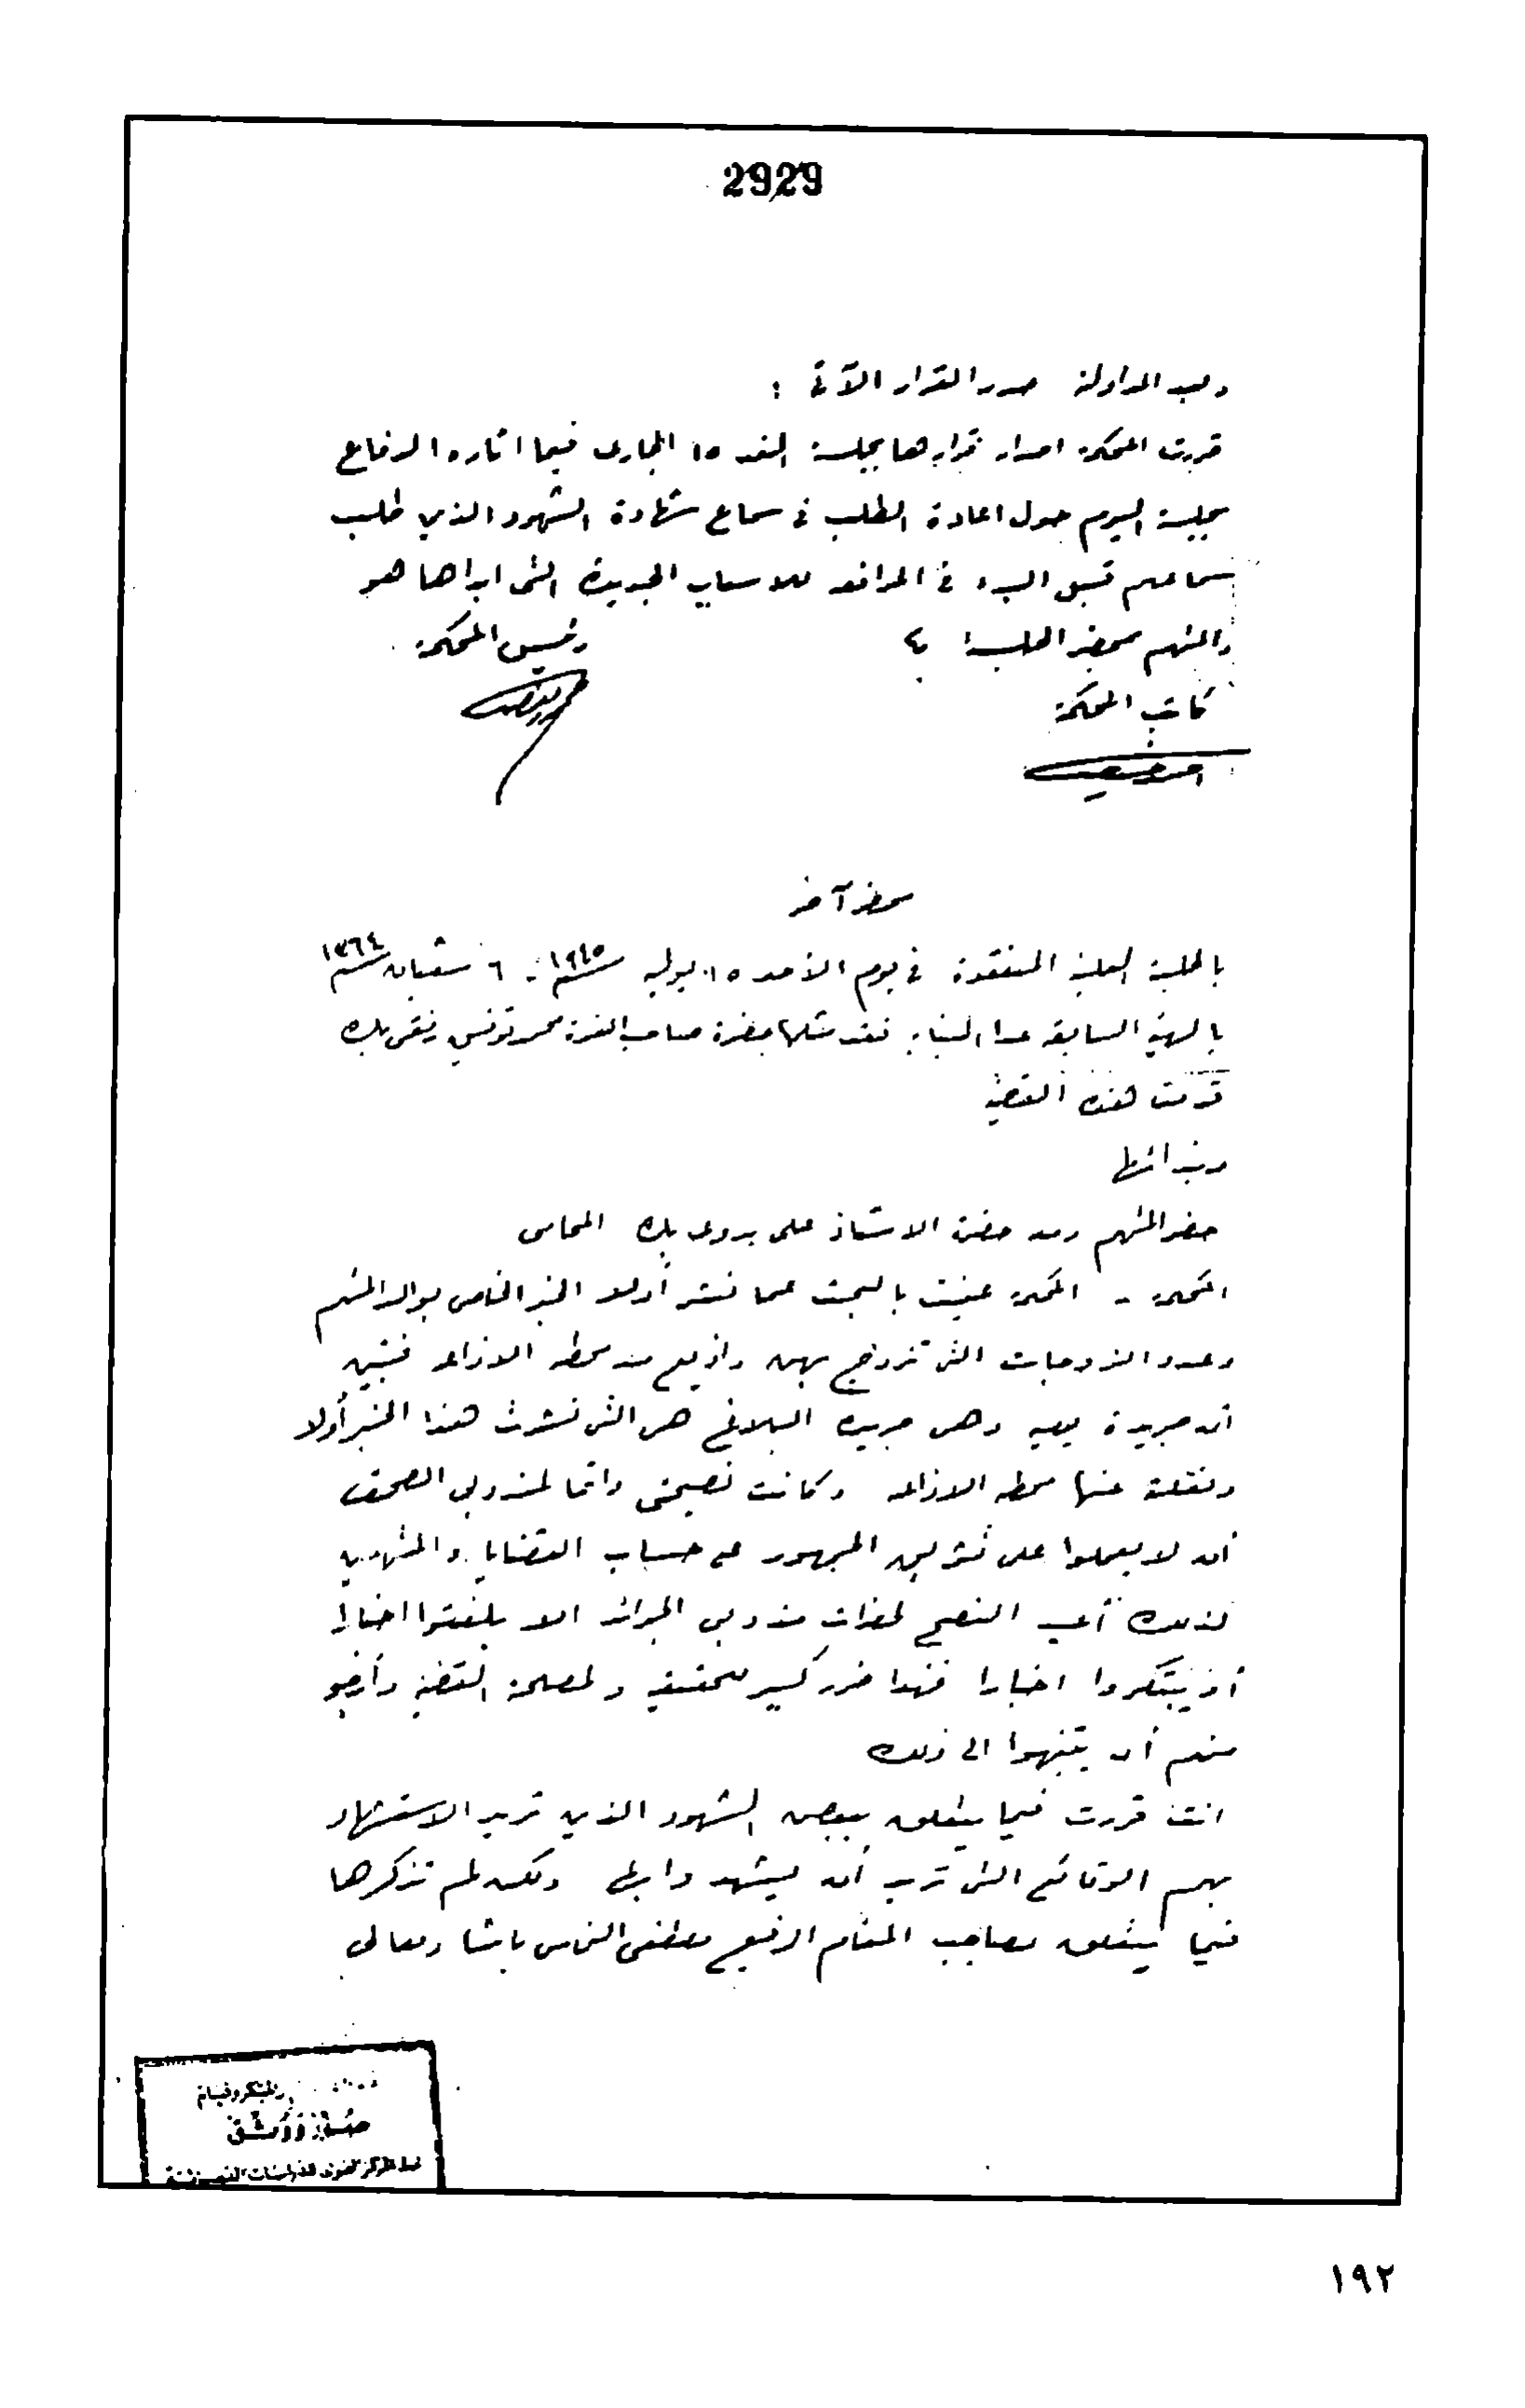 2929
وبعد المداولة صدر القرار الآتى :
قررت المحكمة اصدار قرارها بجلسة الغد ١٥ الجارى فيما اثاره الدفاع
بجلسة اليوم حول اعادة الطلب فى سماع شهادة الشهود الذين طلب
سماعهم قبل البدء فى المرافعة للاسباب الجديدة التى ابداها هو
والمتهم بمحضر الجلسة
رئيس المحكمة
كاتب المحكمة
محضر آخر
بالجلسة العلنية المنعقدة فى يوم الأحد ١٥ يوليه سنة ١٩٤٥ - ٦ شعبان سنة ١٣٦٤
بالهيئة السابقة عدا النيابة فقد مثلها حضرة صاحب العزة محمد توفيق رفقى بك
قدمت هذه القضية
وبندائها
حضر المتهم ومعه حضرة الاستاذ على بدوى بك المحامى
المحكمة - المحكمة عنيت بالبحث عما نشر أولا الخبر الخاص بوالد المتهم
وعدد الزوجات التى تزوج بهن واذيع من محطة الاذاعة فتبين
ان جريدة يومية وهى جريدة البلاغ هى التى نشرت هذا الخبر أولا
ونقلته عنها محطة الاذاعة وكانت نصيحتى دائما لمندوبى الصحف
أن لا يعملوا على الجمهور على حساب القضايا والمتهمين
لذلك النصح لحضرات مندوبى الجرائد الا يلفقوا اخبارا
أو يبتكروا اخبارا فهذا ضرر كبير للحقيقة ولمصلحة القضية وأرجو
منهم أن يتنبهوا الى ذلك
انت قررت فيما يتعلق ببعض الشهود الذين تريد الاستشهاد
بهم الوقائع التى تريد أن يشهدوا بها ولكن لم تذكرها
فيما يتعلق بصاحب المقام الرفيع مصطفى النحاس باشا ومعالى
١٩٢